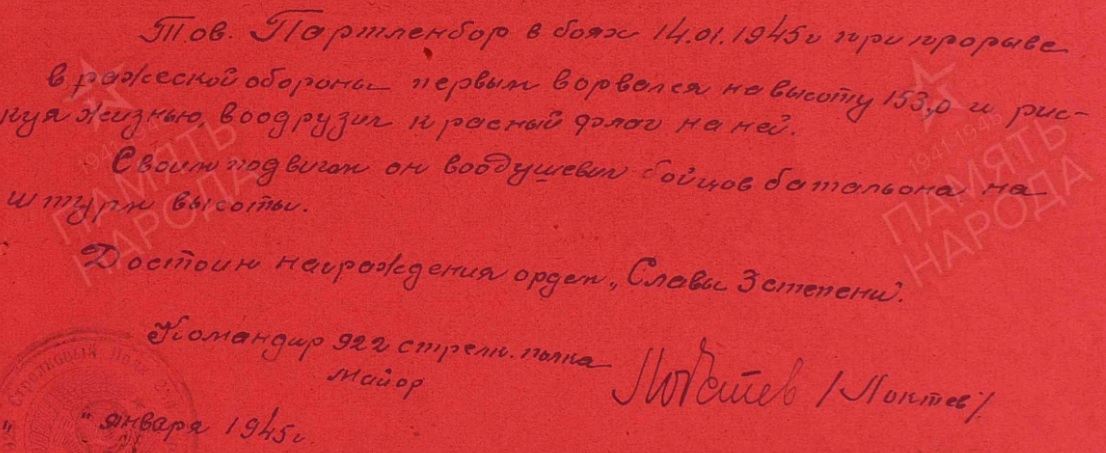 Тов. Партленбор в боях 14.01.1945г при прорыве
вражеской обороны первым ворвался на высоту 153,0 и рис-
куя жизнью, воодрузил красный флаг на ней.
Своим подвигом он воодушевил бойцов батальона на
штурм высоты.
Достоин награждения орден „Славы 3 степени".
Командир 922 стрелк. полка
Майор
Локтев /Локтев/
" января 1945г.
Стрелковый Полк
1941-1945
ПАМЯТЬ
НАРОДА
1941-1945
ПАМЯТЬ
НАРОДА